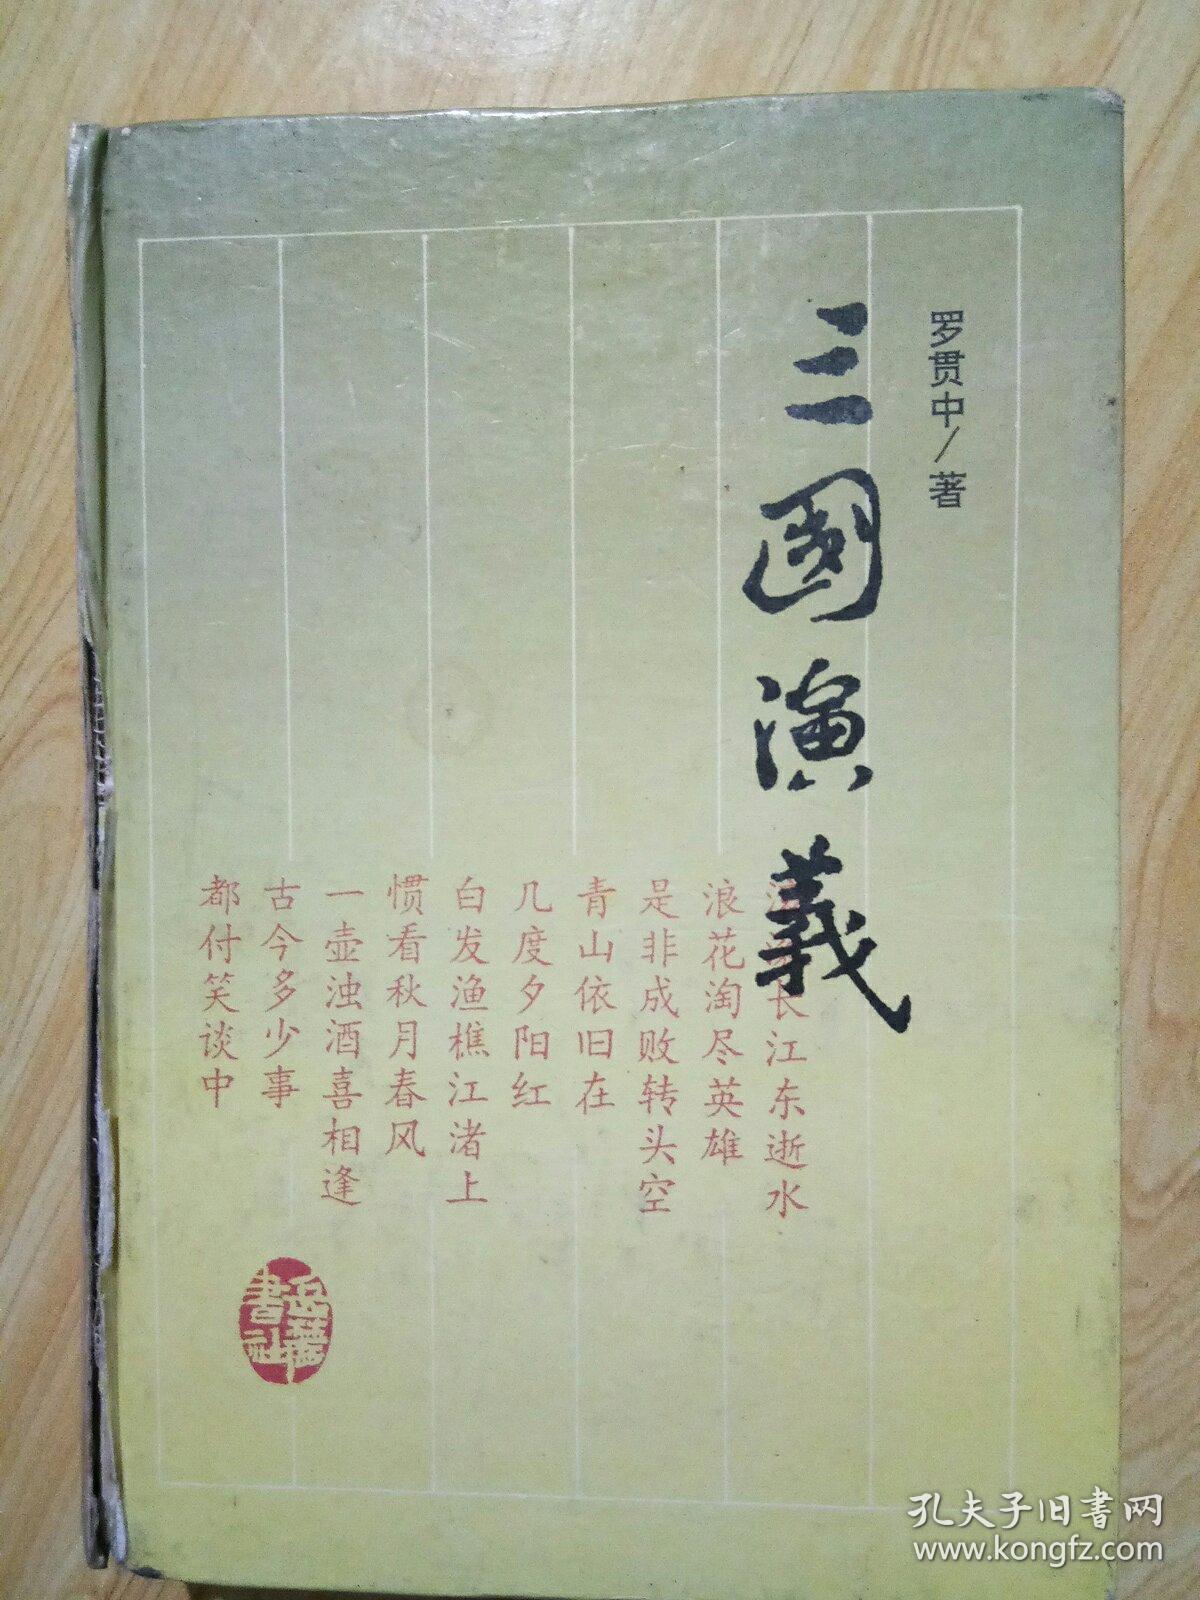 罗贯中/著
三國演義
滚滚长江东逝水
浪花淘尽英雄
是非成败转头空
青山依旧在
几度夕阳红
白发渔樵江渚上
惯看秋月春风
一壶浊酒喜相逢
古今多少事
都付笑谈中
岳麓書社
孔夫子旧书网
www.kongfz.com